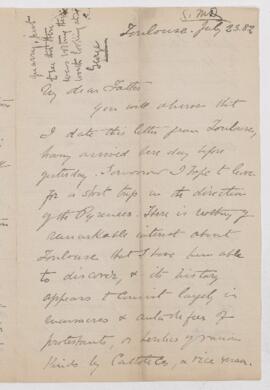 Toulouse. July 23. 82
My dear Father
You will observe that
I date this letter from Toulouse,
having arrived here day before
yesterday. Tomorrow I hope to leave
for a short trip in the direction
of the Pyrenees. There is nothing of
remarkable interest about
Toulouse that I have been able
to discover, & its history
appears to consist largely in
massacres & autodafes of
protestants, or heretics of various
kinds by Catholics, a vice versa.
George